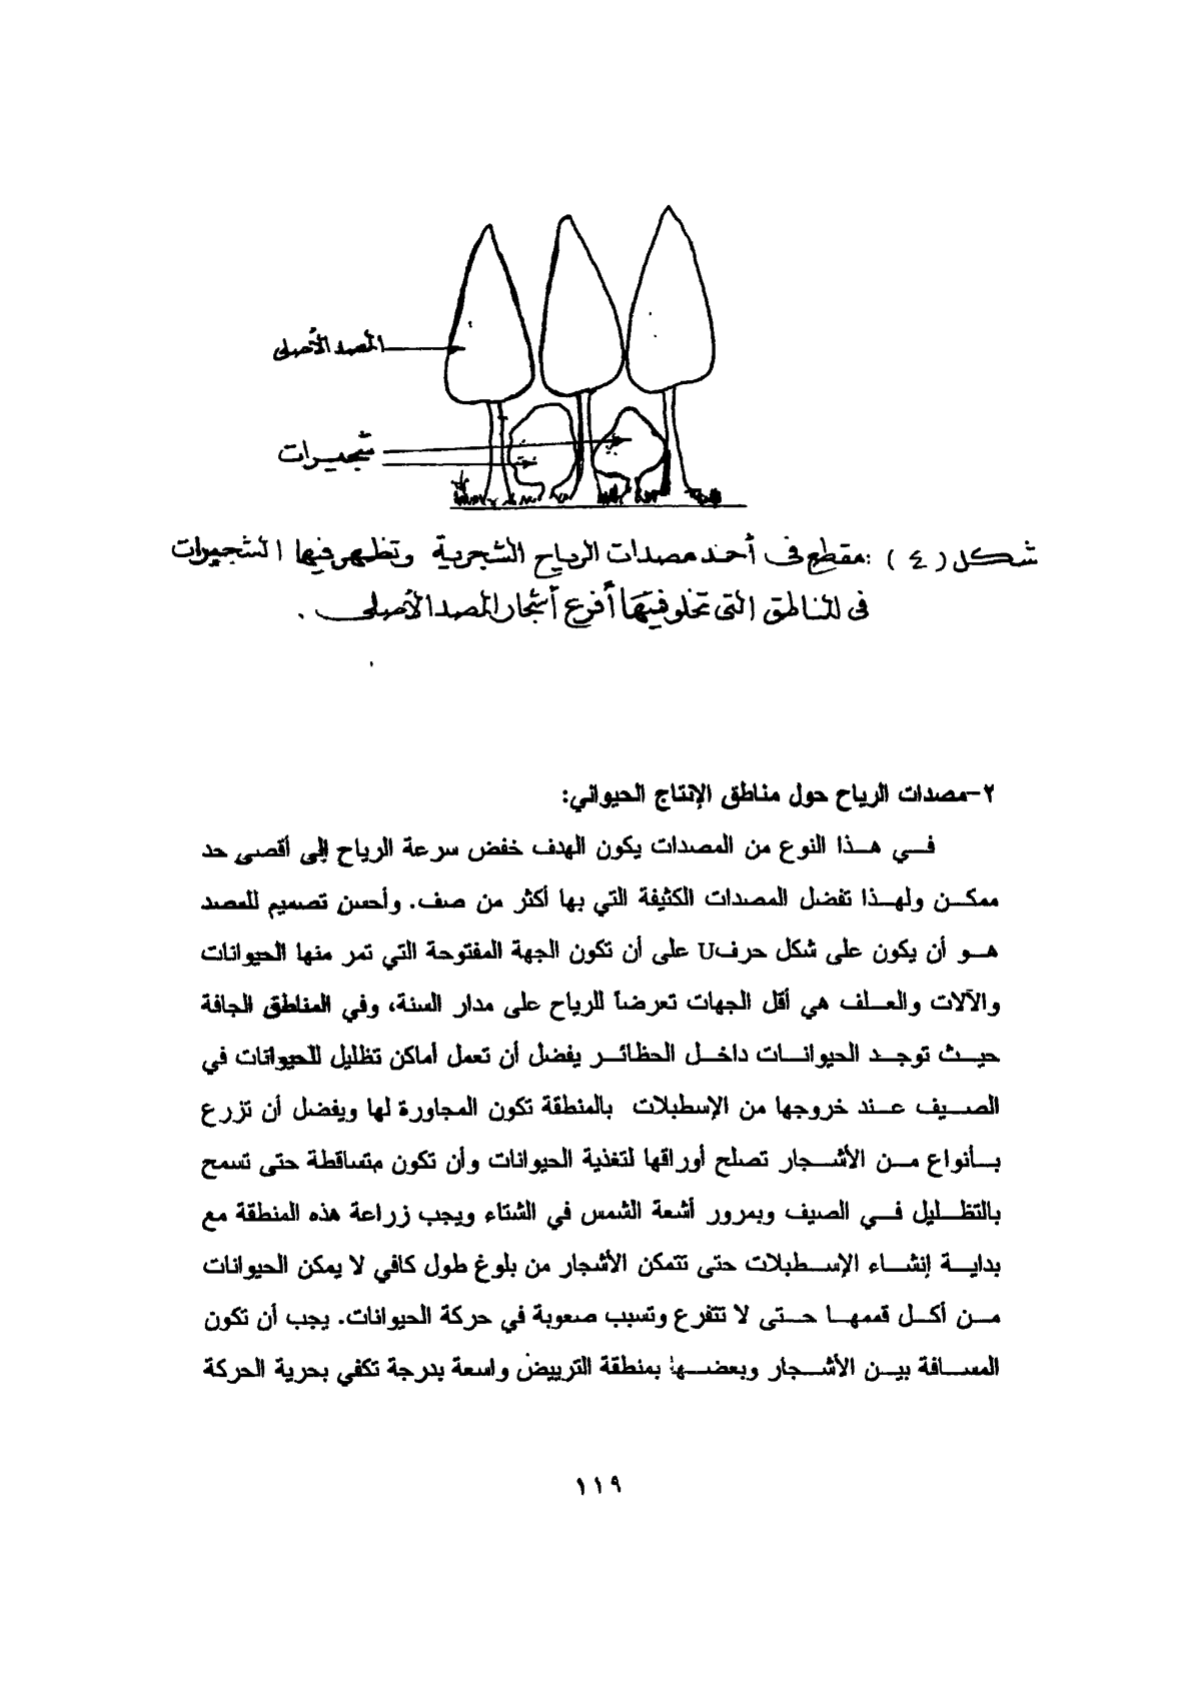 المصد الأصلى
شجيرات
شكل (٤) : مقطع فى أحد مصدات الرياح الشجرية وتظهر فيها الشجيرات
فى المناطق التى تخلو فيها أفرع أشجار المصد الأصلى .
٢-مصدات الرياح حول مناطق الإنتاج الحيواني:
في هذا النوع من المصدات يكون الهدف خفض سرعة الرياح إلى أقصى حد
ممكن ولهذا تفضل المصدات الكثيفة التي بها أكثر من صف. وأحسن تصميم للمصد
هو أن يكون على شكل حرفU على أن تكون الجهة المفتوحة التي تمر منها الحيوانات
والآلات والعلف هي أقل الجهات تعرضاً للرياح على مدار السنة، وفي المناطق الجافة
حيث توجد الحيوانات داخل الحظائر يفضل أن تعمل أماكن تظليل للحيوانات في
الصيف عند خروجها من الإسطبلات بالمنطقة تكون المجاورة لها ويفضل أن تزرع
بأنواع من الأشجار تصلح أوراقها لتغذية الحيوانات وأن تكون متساقطة حتى تسمح
بالتظليل في الصيف وبمرور أشعة الشمس في الشتاء ويجب زراعة هذه المنطقة مع
بداية إنشاء الإسطبلات حتى تتمكن الأشجار من بلوغ طول كافي لا يمكن الحيوانات
من أكل قممها حتى لا تتفرع وتسبب صعوبة في حركة الحيوانات. يجب أن تكون
المسافة بين الأشجار وبعضها بمنطقة التربيض واسعة بدرجة تكفي بحرية الحركة
١١٩